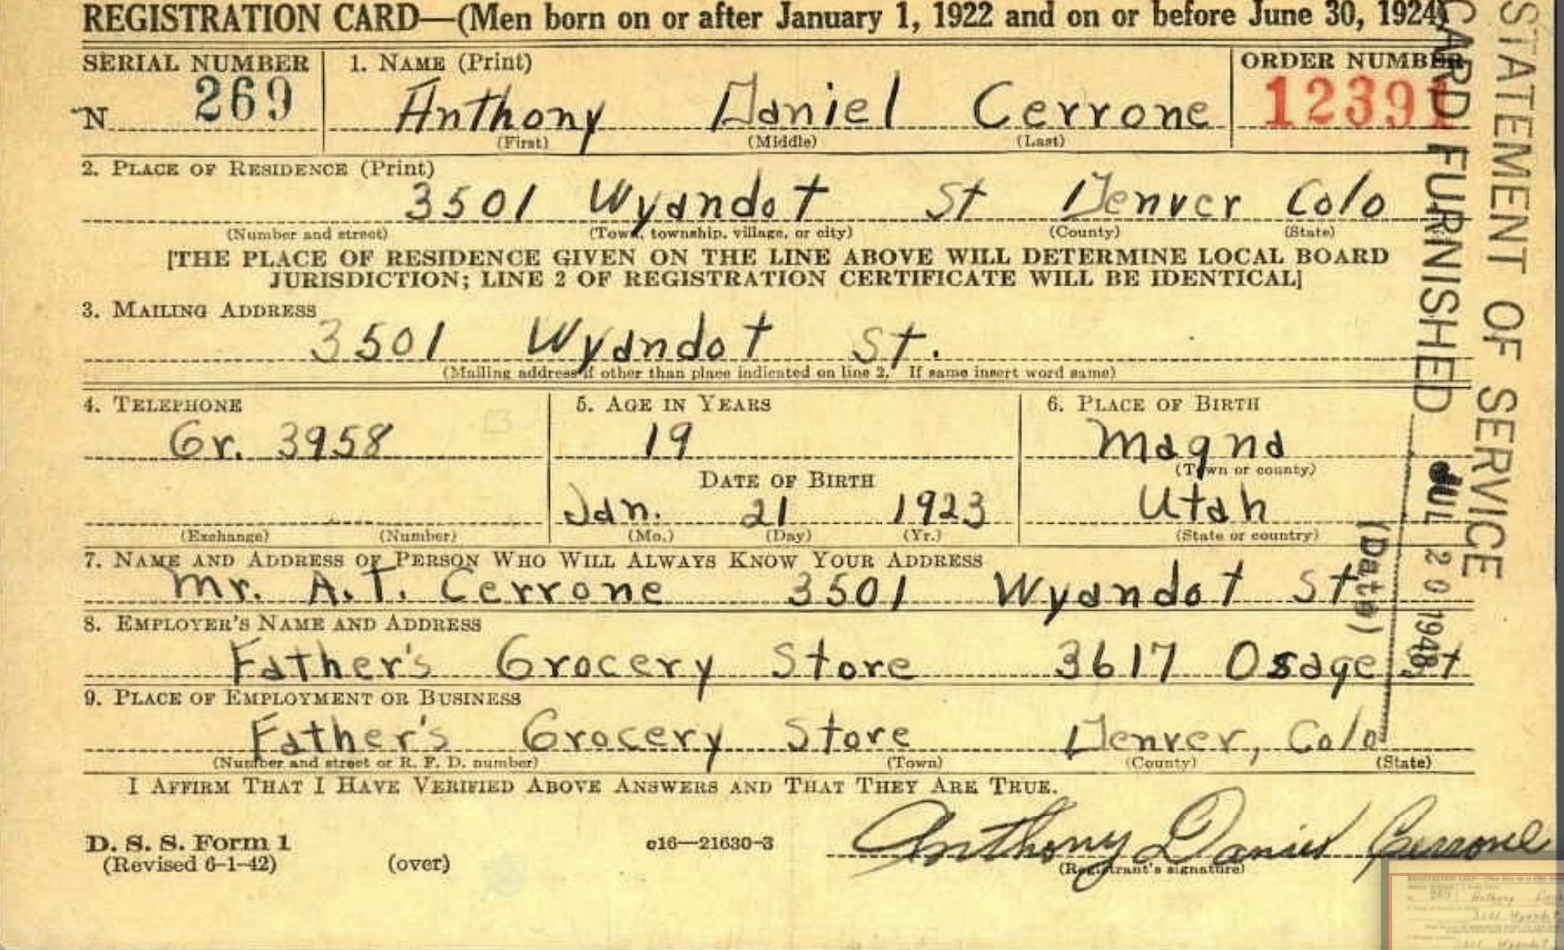 REGISTRATION CARD—(Men born on or after January 1, 1922 and on or before June 30, 1924)
SERIAL NUMBER
N 269
1. NAME (Print)
Anthony Daniel Cerrone
(First) (Middle) (Last)
ORDER NUMBER
12391
2. PLACE OF RESIDENCE (Print)
3501 Wyandot St Denver Colo
(Number and street) (Town, township, village, or city) (County) (State)
[THE PLACE OF RESIDENCE GIVEN ON THE LINE ABOVE WILL DETERMINE LOCAL BOARD
JURISDICTION; LINE 2 OF REGISTRATION CERTIFICATE WILL BE IDENTICAL]
3. MAILING ADDRESS
3501 Wyandot St.
(Mailing address if other than place indicated on line 2. If same insert word same)
4. TELEPHONE
Gr. 3958
(Exchange) (Number)
5. AGE IN YEARS
19
DATE OF BIRTH
Jan. 21 1923
(Mo.) (Day) (Yr.)
6. PLACE OF BIRTH
Magna
(Town or county)
Utah
(State or country)
7. NAME AND ADDRESS OF PERSON WHO WILL ALWAYS KNOW YOUR ADDRESS
Mr. A.T. Cerrone 3501 Wyandot St
8. EMPLOYER'S NAME AND ADDRESS
Father's Grocery Store 3617 Osage St
9. PLACE OF EMPLOYMENT OR BUSINESS
Father's Grocery Store Denver, Colo
(Number and street or R. F. D. number) (Town) (County) (State)
I AFFIRM THAT I HAVE VERIFIED ABOVE ANSWERS AND THAT THEY ARE TRUE.
D. S. S. Form 1
(Revised 6-1-42) (over)
c16—21630-3
Anthony Daniel Cerrone
(Registrant's signature)
STATEMENT OF SERVICE
CARD FURNISHED JUL 20 1948
(Date)